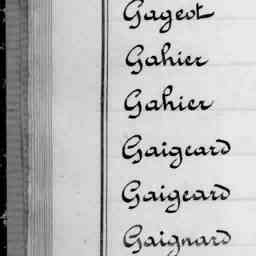 Gageot
Gahier
Gahier
Gaigeard
Gaigeard
Gaignard